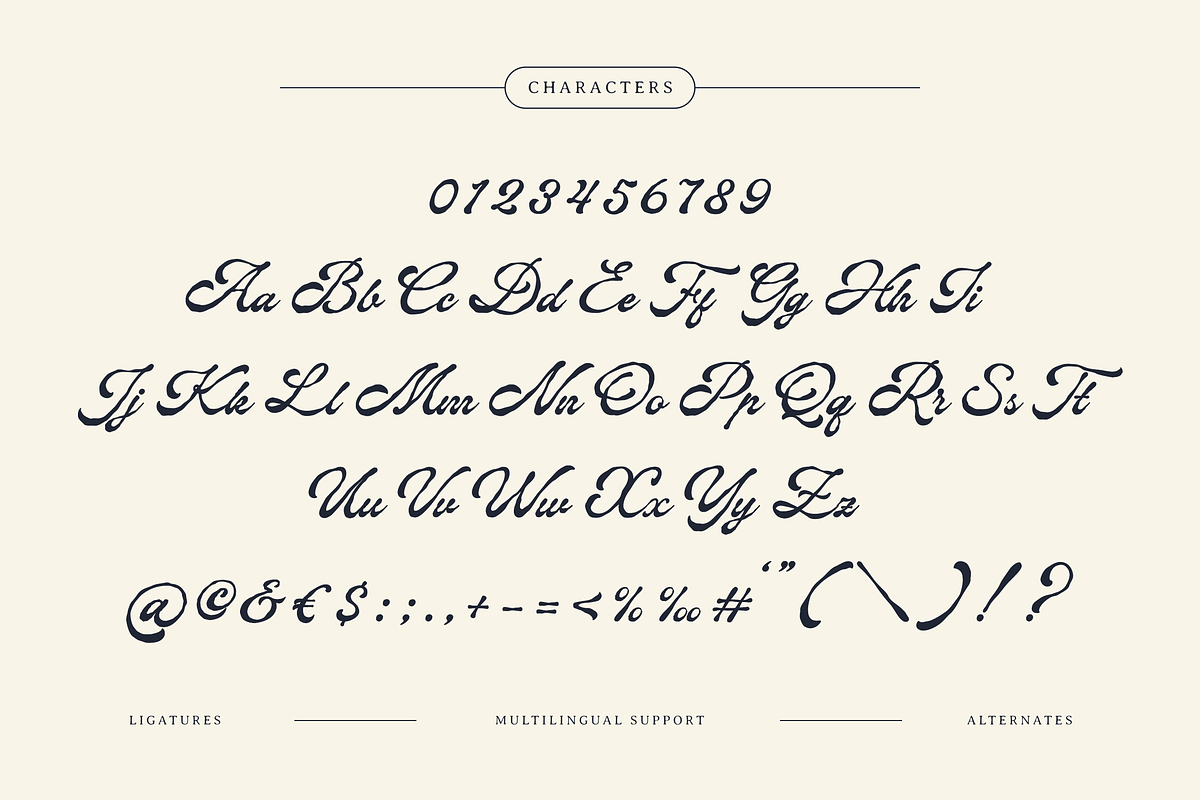 CHARACTERS
0123456789
Aa Bb Cc Dd Ee Ff Gg Hh Ii
Jj Kk Ll Mm Nn Oo Pp Qq Rr Ss Tt
Uu Vv Ww Xx Yy Zz
@©&€$:;.,+-=<%‰#‘”(\)!?
LIGATURES MULTILINGUAL SUPPORT ALTERNATES